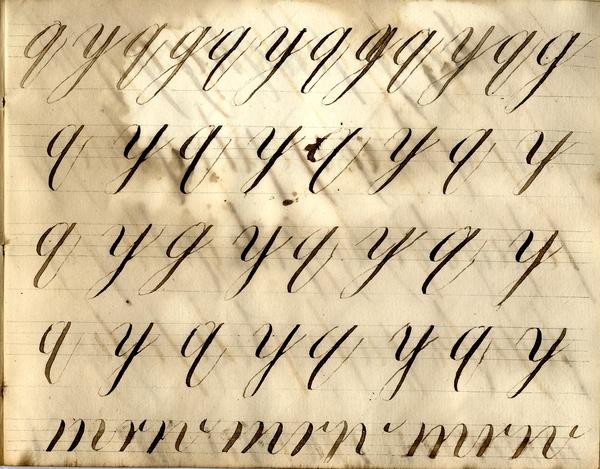 q y q g q y q g q y q g
q y q y q y q y
q y g y q y q y
q y q y q y q y
mrn mrn mrn